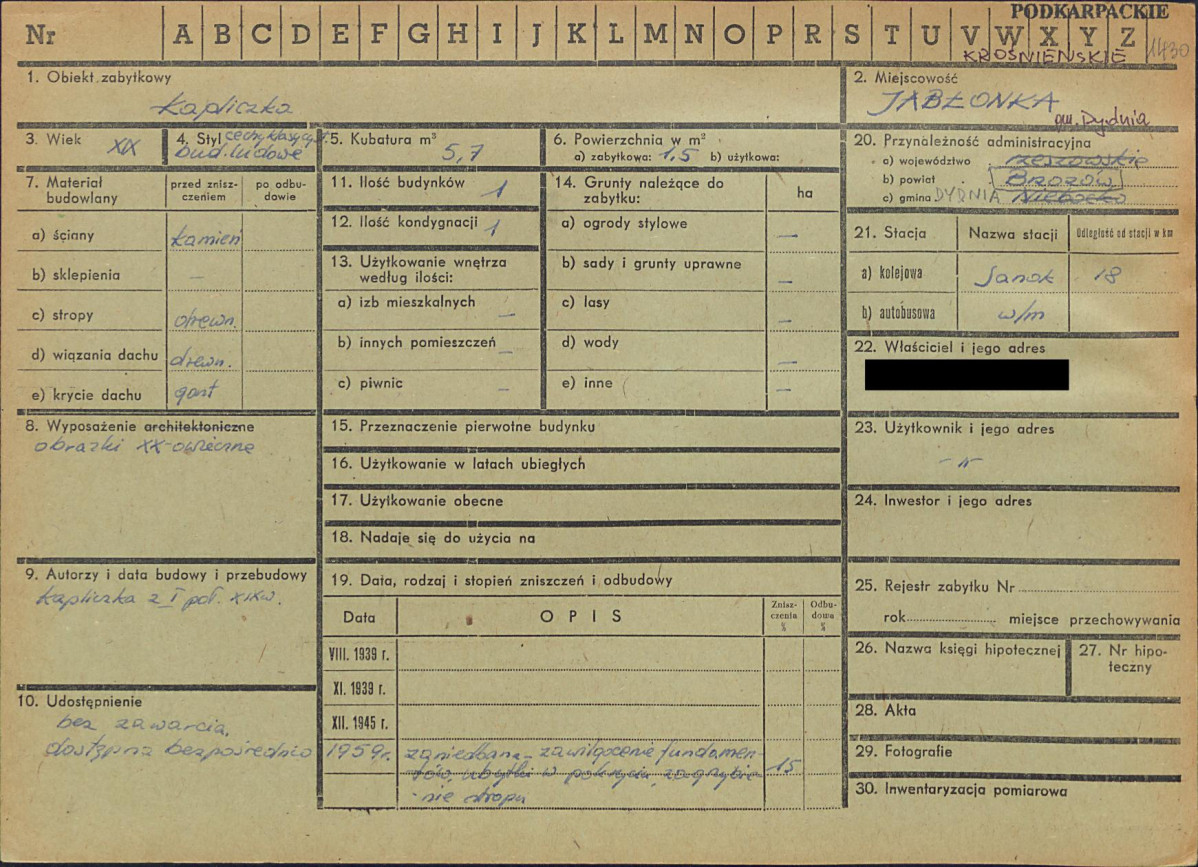 PODKARPACKIE
Nr A B C D E F G H I J K L M N O P R S T U V W X Y Z 1430
KROŚNIEŃSKIE
1. Obiekt zabytkowy
kapliczka
2. Miejscowość
JABŁONKA
gm. Dydnia
3. Wiek XIX
4. Styl cechy klasycyst.
bud. ludowe
5. Kubatura m³
5,7
6. Powierzchnia w m²
a) zabytkowa: 1,5 b) użytkowa:
20. Przynależność administracyjna
a) województwo rzeszowskie
b) powiat BRZOZÓW
c) gmina DYDNIA Niebocko
7. Materiał budowlany
przed zniszczeniem
po odbudowie
a) ściany kamień
b) sklepienia —
c) stropy drewn.
d) wiązania dachu drewn.
e) krycie dachu gont
11. Ilość budynków 1
12. Ilość kondygnacji 1
13. Użytkowanie wnętrza
według ilości:
a) izb mieszkalnych —
b) innych pomieszczeń —
c) piwnic —
14. Grunty należące do
zabytku:
ha
a) ogrody stylowe —
b) sady i grunty uprawne —
c) lasy —
d) wody —
e) inne —
21. Stacja Nazwa stacji Odległość od stacji w km
a) kolejowa Sanok 18
b) autobusowa w/m
22. Właściciel i jego adres
8. Wyposażenie architektoniczne
obrazki XX-owieczne
15. Przeznaczenie pierwotne budynku
16. Użytkowanie w latach ubiegłych
17. Użytkowanie obecne
18. Nadaje się do użycia na
23. Użytkownik i jego adres
- " -
24. Inwestor i jego adres
9. Autorzy i data budowy i przebudowy
kapliczka z I poł. XIX w.
19. Data, rodzaj i stopień zniszczeń i odbudowy
Data OPIS Zniszczenia % Odbudowa %
VIII. 1939 r.
XI. 1939 r.
XII. 1945 r.
1959 r. zaniedbana – zawilgocenie fundamen-
tów, ubytki w pokryciu, zagrzybie-
nie stropu
15
10. Udostępnienie
bez zawarcia,
dostępna bezpośrednio
25. Rejestr zabytku Nr
rok miejsce przechowywania
26. Nazwa księgi hipotecznej
27. Nr hipo-
teczny
28. Akta
29. Fotografie
30. Inwentaryzacja pomiarowa